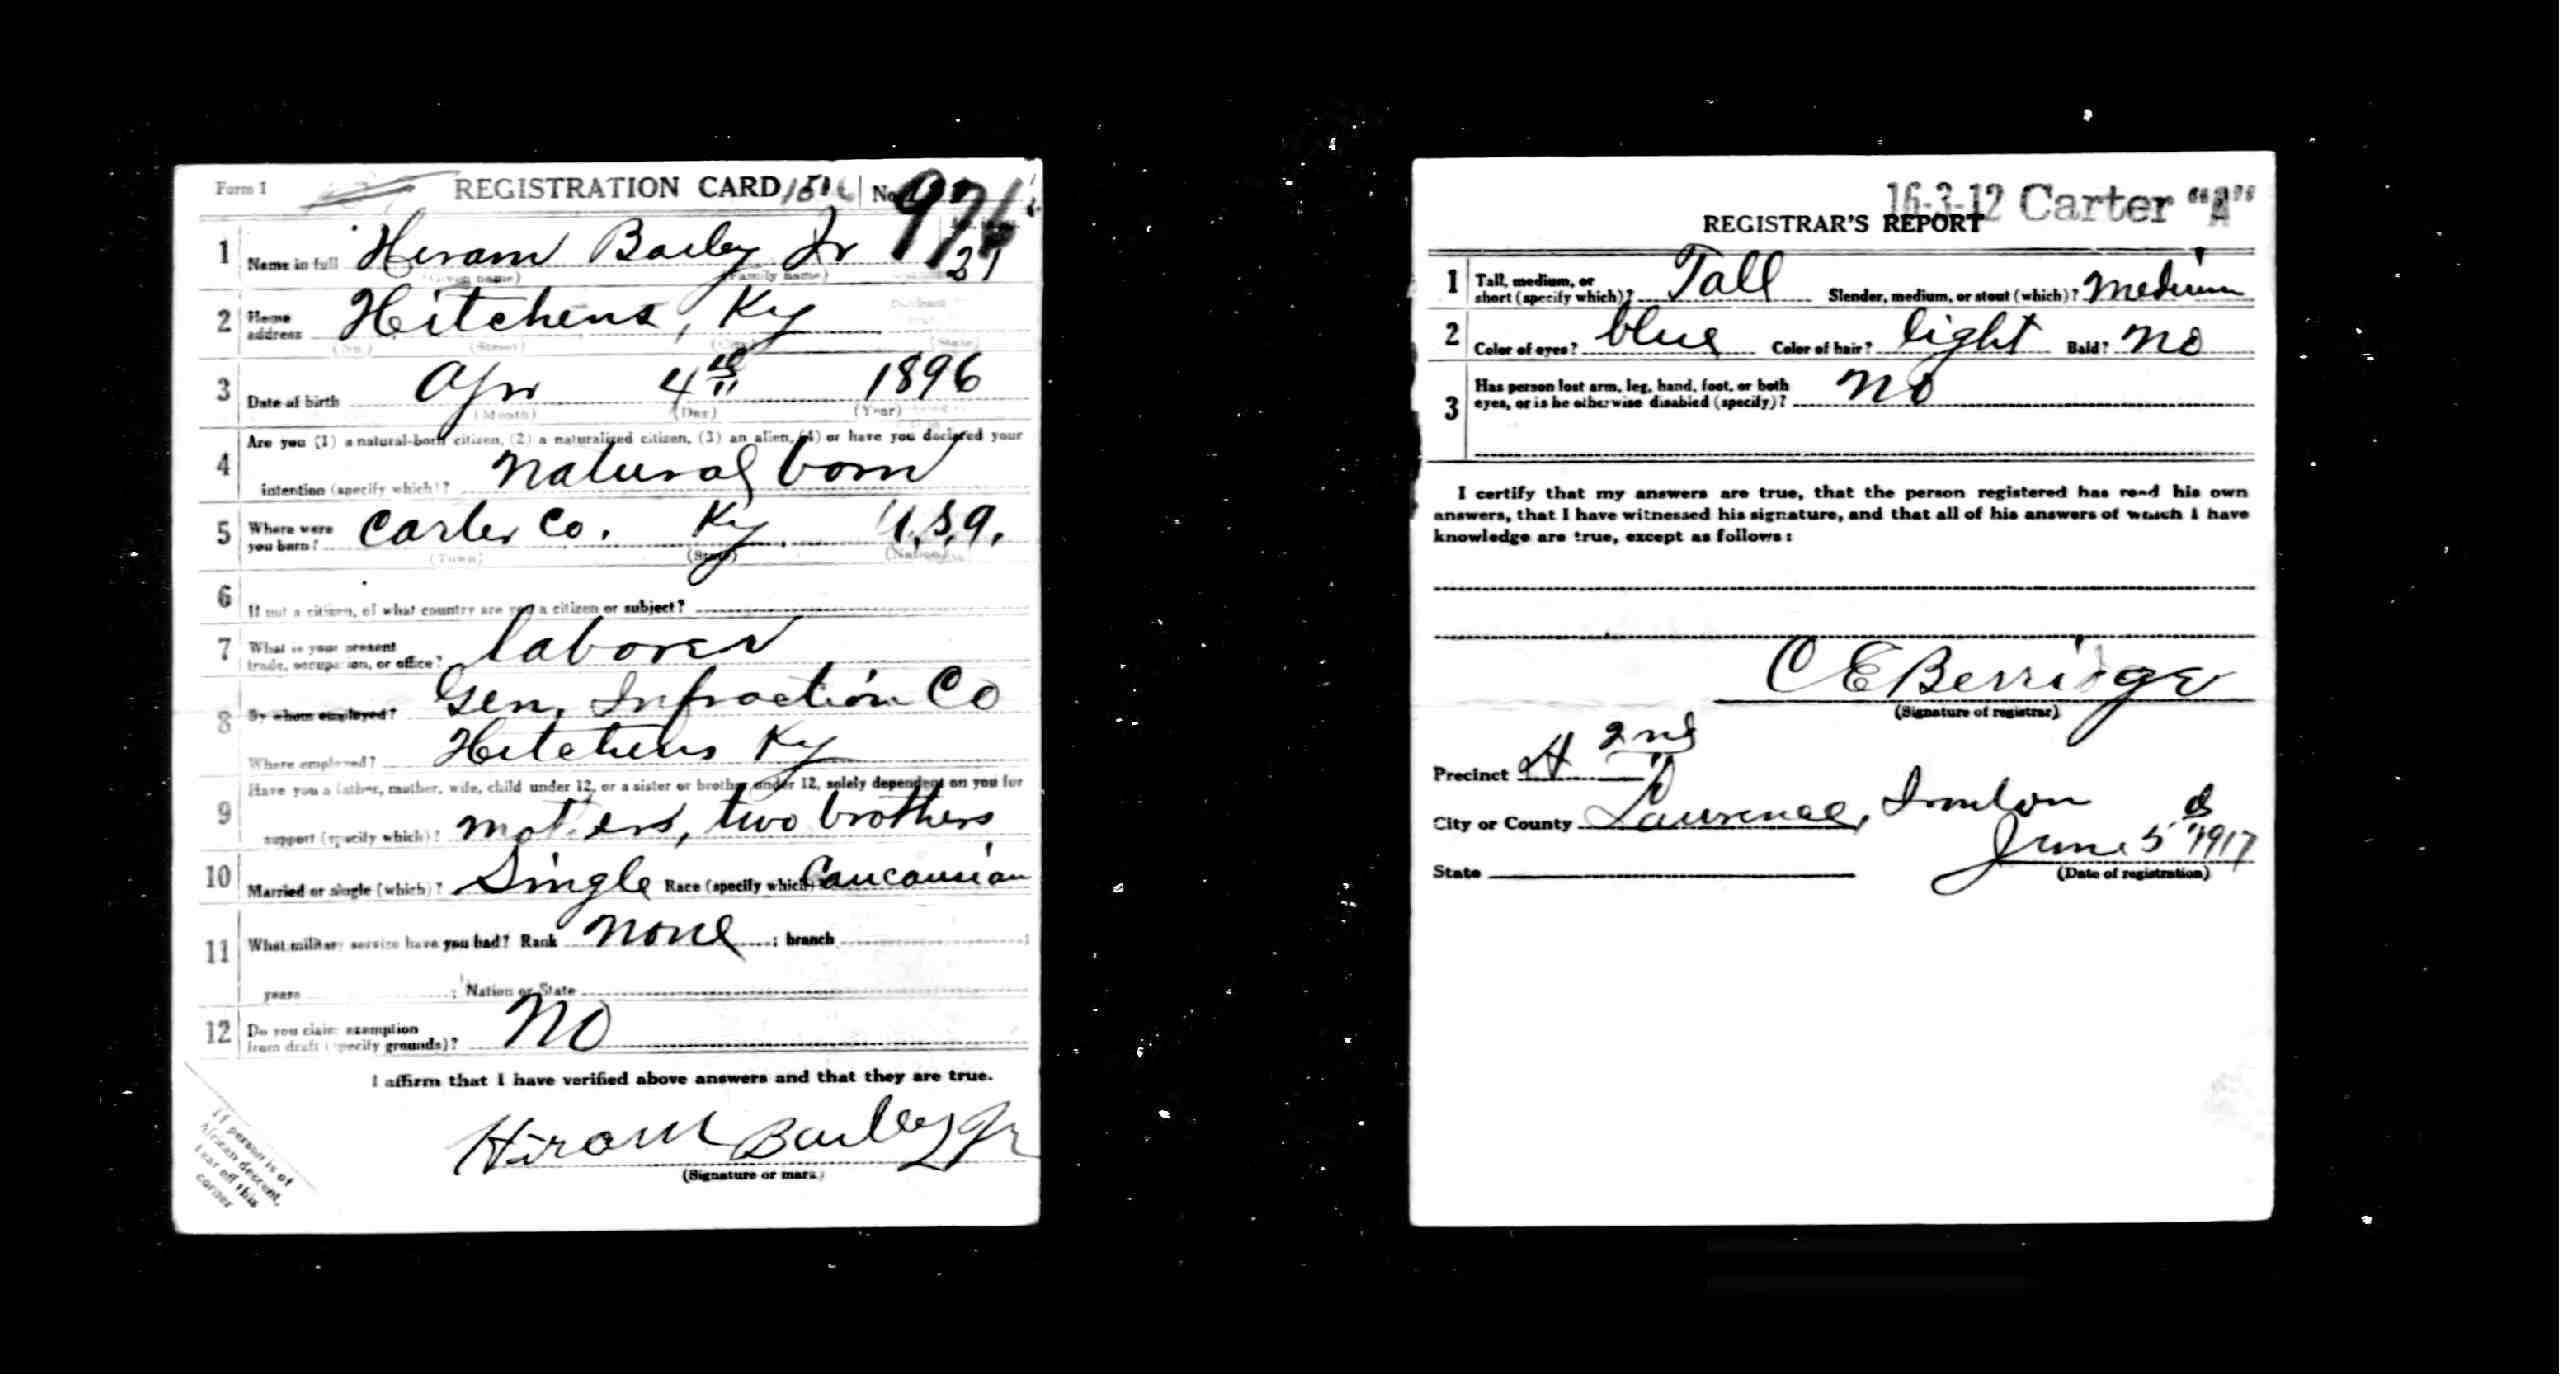 Form 1 REGISTRATION CARD No.
1 Name in full Hiram Baily Jr 21
(Given name) (Family name)
2 Home address Hitchens, Ky
(No.) (Street) (City) (State)
3 Date of birth Apr 4th 1896
(Month) (Day) (Year)
4 Are you (1) a natural-born citizen, (2) a naturalized citizen, (3) an alien, (4) or have you declared your
intention (specify which)? natural born
5 Where were you born? Carter Co. Ky. U.S.A.
(Town) (State) (Nation)
6 If not a citizen, of what country are you a citizen or subject?
7 What is your present trade, occupation, or office? laborer
8 By whom employed? Gen. Infraction Co
Where employed? Hitchins Ky
9 Have you a father, mother, wife, child under 12, or a sister or brother under 12, solely dependent on you for
support (specify which)? mothers, two brothers
10 Married or single (which)? Single Race (specify which) Caucausian
11 What military service have you had? Rank none ; branch ;
years ; Nation or State
12 Do you claim exemption from draft (specify grounds)? No
I affirm that I have verified above answers and that they are true.
Hiram Bailey Jr
(Signature or mark)
If person is of
African descent,
tear off this
corner
16-3-12 Carter "A"
REGISTRAR'S REPORT
1 Tall, medium, or short (specify which)? Tall Slender, medium, or stout (which)? medium
2 Color of eyes? blue Color of hair? light Bald? no
3 Has person lost arm, leg, hand, foot, or both
eyes, or is he otherwise disabled (specify)? no
I certify that my answers are true, that the person registered has read his own
answers, that I have witnessed his signature, and that all of his answers of which I have
knowledge are true, except as follows:
C E Berridge
(Signature of registrar)
Precinct 2nd
City or County Lawrence, Ironton
State June 5 1917
(Date of registration)